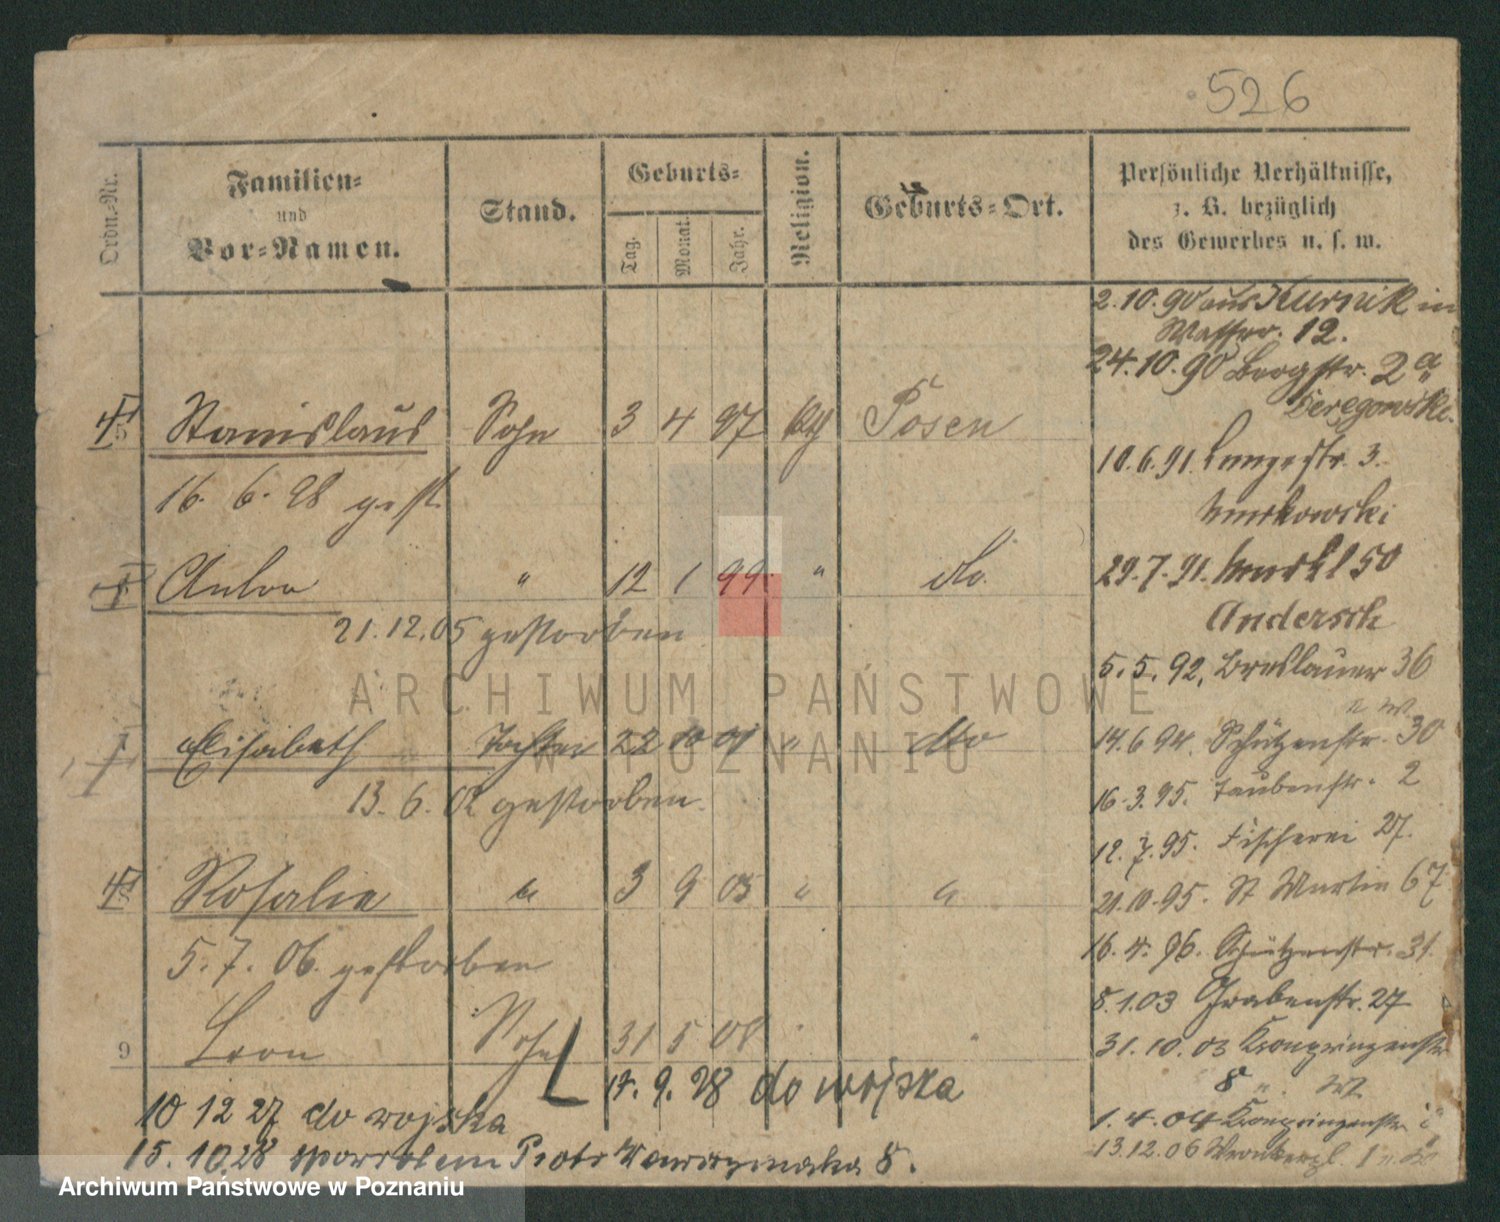 526
Ordn.-Nr.
Familien-
und
Vor-Namen.
Stand.
Geburts-
Tag.
Monat.
Jahr.
Religion.
Geburts-Ort.
Persönliche Verhältnisse,
z. B. bezüglich
des Gewerbes u. s. w.
2.10.90 aus Kurnik in
Wasser. 12.
24.10.90 Bergstr. 2a
Seregowski.
Stanislaus Sohn 3 4 97 Posen
10.6.91. Langestr. 3.
16. 6. 28 gest.
Murkowski
Anton " 12 1 99 " do.
29.7.91. Markt 50
Andersch
21.12.05 gestorben
5.5.92. Breslauer 36
ARCHIWUM PAŃSTWOWE
W POZNANIU
Elisabeth Tochter 22 10 01 " dto
14.6.94. Schützenstr. 30
13.6.02 gestorben.
16.3.95. Taubenstr. 2
12.7.95. Fischerei 27.
Rosalie " 3 9 05 " "
21.10.95. St Martin 67
5.7.06. gestorben
16.4.96. Schützenstr. 31.
8.1.03 Grabenstr. 27
9 Leon Sohn 31 5 08 " "
31.10.03 Kronprinzenstr
8
17.9.28 do wojska
10 12 27 do wojska
1.4.04 Kronprinzenstr
15.10.28 powrotem Piotr Wawrzyniaka 8.
13.12.06
Archiwum Państwowe w Poznaniu